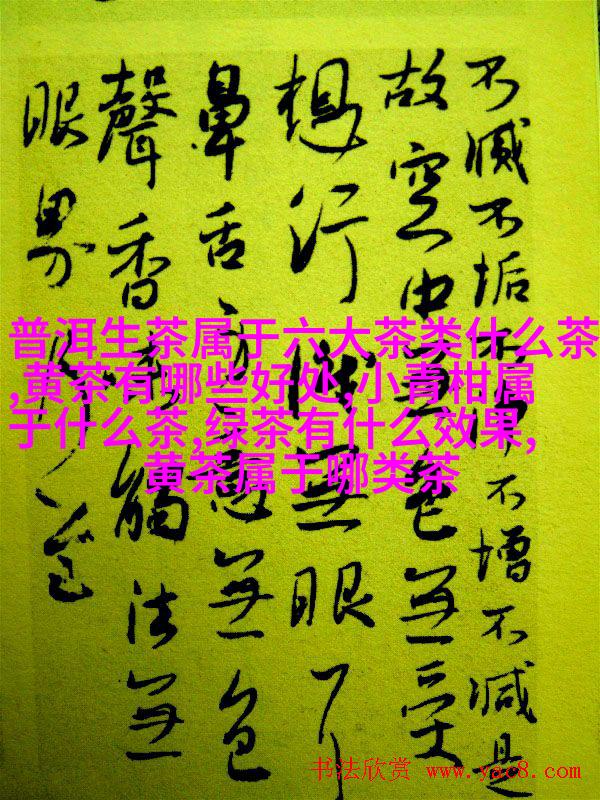 普洱生茶属于六大茶类什么茶
,黄茶有哪些好处,小青柑属
于什么茶,绿茶有什么效果,
黄茶属于哪类茶
不滅不垢不不增不減是
故空中無色無受
想行識無眼耳
鼻舌身意無色
聲香味觸法無
眼界
书法欣赏 www.yac8.com